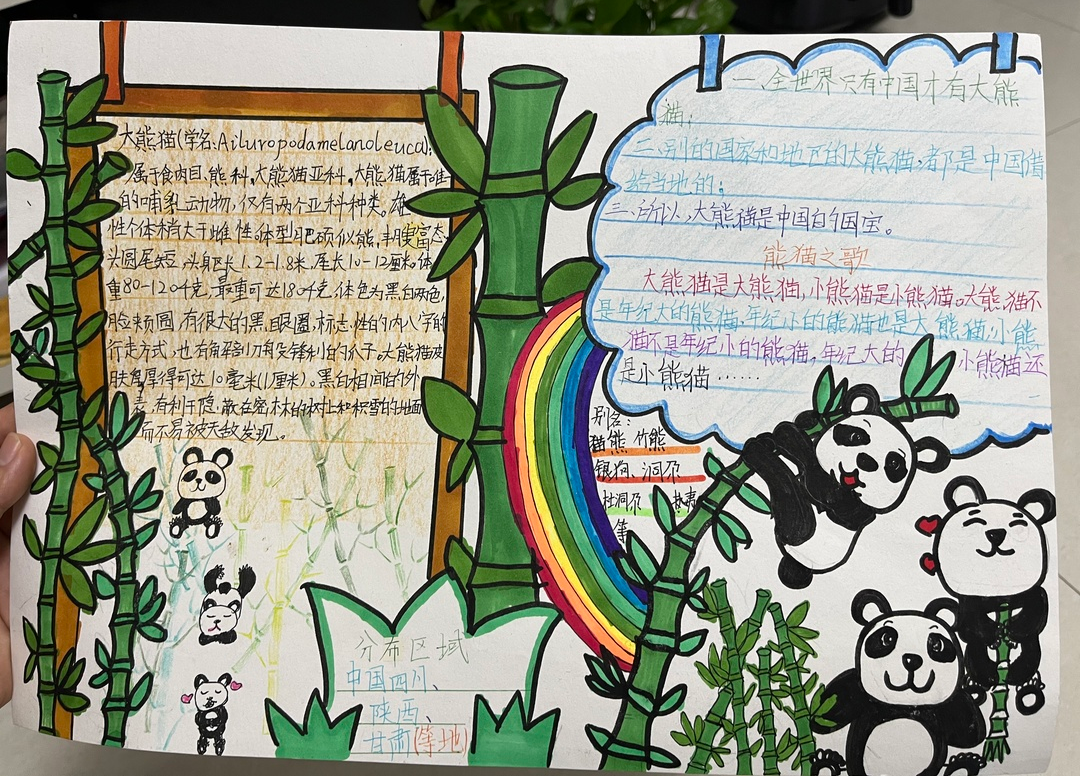 大熊猫(学名:Ailuropodamelanoleuca),
属于食肉目,熊科,大熊猫亚科,大熊猫属于唯
的哺乳动物,仅有两个亚科种类。雄
性个体稍大于雌性。体型肥硕似熊,丰腴富态,
头圆尾短,头躯长1.2-1.8米,尾长10-12厘米。体
重80-120千克,最重可达180千克,体色为黑白两色,
脸颊圆,有很大的黑眼圈,标志性的内八字的
行走方式,也有解剖刀般锋利的爪子。大熊猫皮
肤厚,厚得可达10毫米(1厘米)。黑白相间的外
表,有利于隐蔽在密林的树上和积雪的地面
而不易被天敌发现。
分布区域
中国四川、
陕西、
甘肃(等地)
别名:
猫熊 竹熊
银狗、洞尕
杜洞尕
等
一、全世界只有中国才有大熊
猫;
二、别的国家和地区的大熊猫,都是中国借
给当地的;
三、所以,大熊猫是中国的国宝。
熊猫之歌
大熊猫是大熊猫,小熊猫是小熊猫。大熊猫不
是年纪大的熊猫,年纪小的熊猫也是大熊猫,小熊
猫不是年纪小的熊猫,年纪大的小熊猫还
是小熊猫……